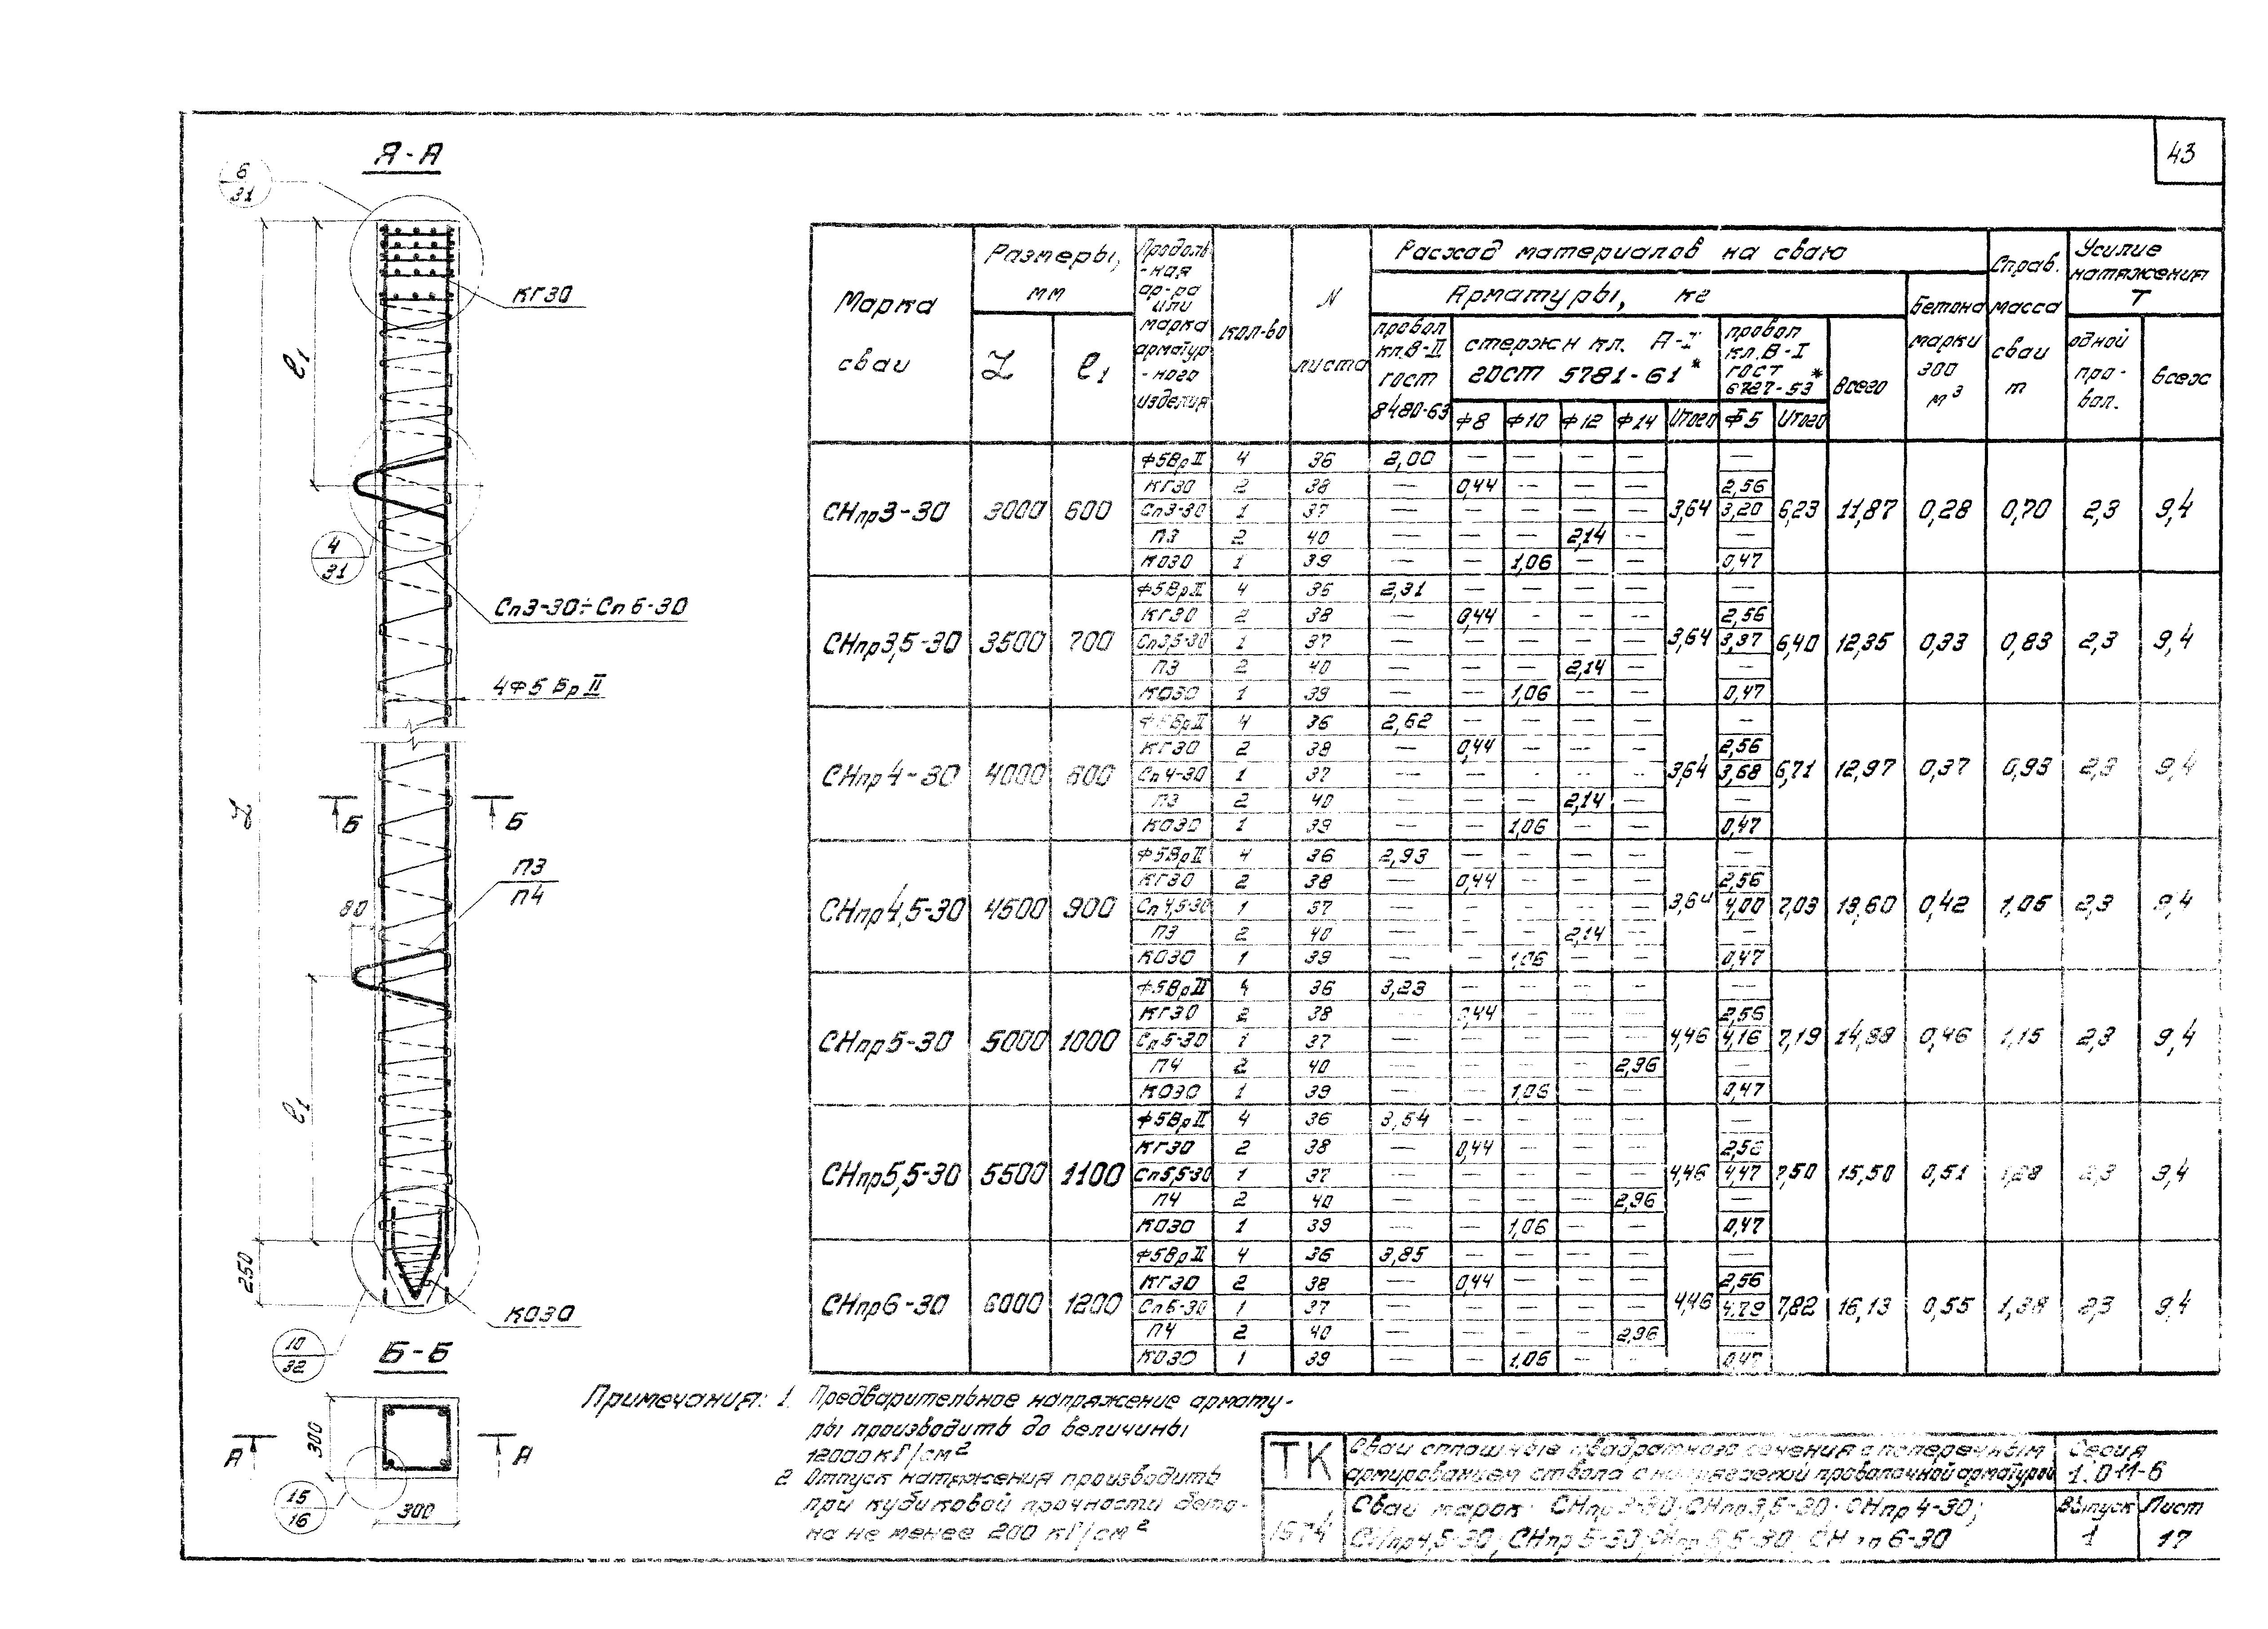 43
А-А
6
31
КГ30
ℓ1
4
31
Сп3-30÷Сп6-30
4Ф5 Вр II
L
Б Б
П3
П4
80
ℓ1
250
К030
10
32
Б-Б
300
А А
15
16
300
Марка сваи | Размеры, мм | Продоль-ная ар-ра или марка арматур-ного изделия | кол-во | N листа | Расход материалов на сваю | Справ. масса сваи т | Усилие натяжения Т
L | ℓ1 | Арматуры, кг | Бетона марки 300 м³ | одной про-вол. | всего
провол кл.В-II гост 8480-63 | стержн кл. А-I гост 5781-61* | провол кл.В-I гост 6727-53* | Всего
Ф8 | Ф10 | Ф12 | Ф14 | Итого | Ф5 | Итого
СНпр3-30 | 3000 | 600 | 3,64 | 6,23 | 11,87 | 0,28 | 0,70 | 2,3 | 9,4
Ф5ВрII | 4 | 36 | 2,00 | — | — | — | — | —
КГ30 | 2 | 38 | — | 0,44 | — | — | — | 2,56
Сп3-30 | 1 | 37 | — | — | — | — | — | 3,20
П3 | 2 | 40 | — | — | — | 2,14 | — | —
К030 | 1 | 39 | — | — | 1,06 | — | — | 0,47
СНпр3,5-30 | 3500 | 700 | 3,64 | 6,40 | 12,35 | 0,33 | 0,83 | 2,3 | 9,4
Ф5ВрII | 4 | 36 | 2,31 | — | — | — | — | —
КГ30 | 2 | 38 | — | 0,44 | - | — | — | 2,56
Сп3,5-30 | 1 | 37 | — | — | — | — | — | 3,37
П3 | 2 | 40 | — | — | — | 2,14 | — | —
К030 | 1 | 39 | — | — | 1,06 | — | — | 0,47
СНпр4-30 | 4000 | 800 | 3,64 | 6,71 | 12,97 | 0,37 | 0,93 | 2,3 | 9,4
Ф5ВрII | 4 | 36 | 2,62 | — | — | — | — | —
КГ30 | 2 | 38 | — | 0,44 | — | — | — | 2,56
Сп4-30 | 1 | 37 | — | — | - | - | - | 3,68
П3 | 2 | 40 | — | — | — | 2,14 | — | —
К030 | 1 | 39 | — | — | 1,06 | — | — | 0,47
СНпр4,5-30 | 4500 | 900 | 3,64 | 7,03 | 13,60 | 0,42 | 1,05 | 2,3 | 9,4
Ф5ВрII | 4 | 36 | 2,93 | — | - | — | — | —
КГ30 | 2 | 38 | — | 0,44 | — | — | — | 2,56
Сп4,5-30 | 1 | 37 | — | — | — | — | — | 4,00
П3 | 2 | 40 | — | — | — | 2,14 | — | —
К030 | 1 | 39 | — | — | 1,06 | — | — | 0,47
СНпр5-30 | 5000 | 1000 | 4,46 | 7,19 | 14,88 | 0,46 | 1,15 | 2,3 | 9,4
Ф5ВрII | 4 | 36 | 3,23 | — | — | — | — | —
КГ30 | 2 | 38 | — | 0,44 | — | — | — | 2,56
Сп5-30 | 1 | 37 | — | — | — | — | — | 4,16
П4 | 2 | 40 | — | — | — | — | 2,96 | —
К030 | 1 | 39 | — | — | 1,06 | — | — | 0,47
СНпр5,5-30 | 5500 | 1100 | 4,46 | 7,50 | 15,50 | 0,51 | 1,28 | 2,3 | 9,4
Ф5ВрII | 4 | 36 | 3,54 | — | — | — | — | —
КГ30 | 2 | 38 | — | 0,44 | — | — | — | 2,56
Сп5,5-30 | 1 | 37 | — | — | — | — | — | 4,47
П4 | 2 | 40 | — | — | — | — | 2,96 | —
К030 | 1 | 39 | — | — | 1,06 | — | — | 0,47
СНпр6-30 | 6000 | 1200 | 4,46 | 7,82 | 16,13 | 0,55 | 1,38 | 2,3 | 9,4
Ф5ВрII | 4 | 36 | 3,85 | — | — | — | — | —
КГ30 | 2 | 38 | — | 0,44 | — | — | — | 2,56
Сп6-30 | 1 | 37 | — | — | — | — | — | 4,79
П4 | 2 | 40 | — | — | — | — | 2,96 | —
К030 | 1 | 39 | — | — | 1,06 | — | - | 0,47
Примечания: 1. Предварительное напряжение армату-
ры производить до величины
12000 кГ/см²
2 Отпуск натяжения производить
при кубиковой прочности бето-
на не менее 200 кГ/см²
ТК
1974
Сваи сплошные квадратного сечения с поперечным
армированием ствола с напрягаемой проволочной арматурой
Сваи марок: СНпр3-30; СНпр3,5-30; СНпр4-30;
СНпр4,5-30; СНпр5-30; СНпр5,5-30; СНпр6-30
Серия
1.011-6
Выпуск Лист
1 17